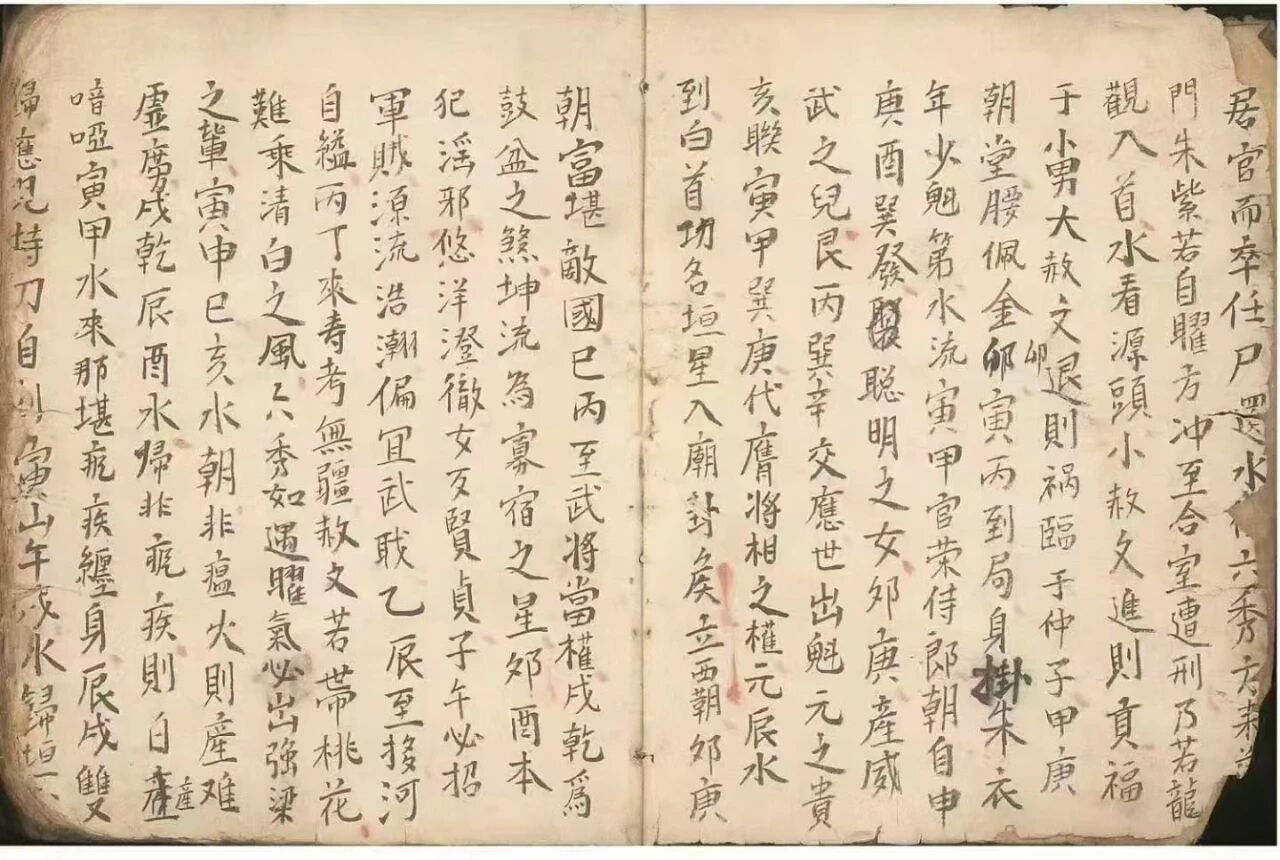 居官而卒任尸還水 六秀方来
門朱紫若自曜方冲至合室遭刑乃若龍
觀入首水看源頭小赦文進則貢福
于小男大赦文退則祸臨于仲子甲庚
朝堂腰佩金卯寅丙到局身掛朱衣
卯
年少魁第水流寅甲官荣侍郎朝自申
庚酉巽發 聪明之女郊庚產威
武之兒艮丙巽辛交應世出魁元之貴
亥聯寅甲巽庚代膺將相之權元辰水
到白首功名垣星入廟卦矦立西朝郊庚
朝富堪敵國巳丙至武將當權戌乾爲
鼓盆之煞坤流為寡宿之星郊酉本
犯滛邪悠洋澄徹女反賢貞子午必招
軍賊源流浩潮偏宜武戝乙辰至掽河
自縊丙丁來寿考無疆赦文若带桃花
難乘清白之風六秀如遇曜氣必出强梁
之輩寅申巳亥水朝非瘟火則産难
虛癆戌乾辰酉水帰非疵疾則白
産
喑啞寅甲水來那堪疵疾纏身辰戌雙
歸應見持刀自 寅山午戌水歸垣